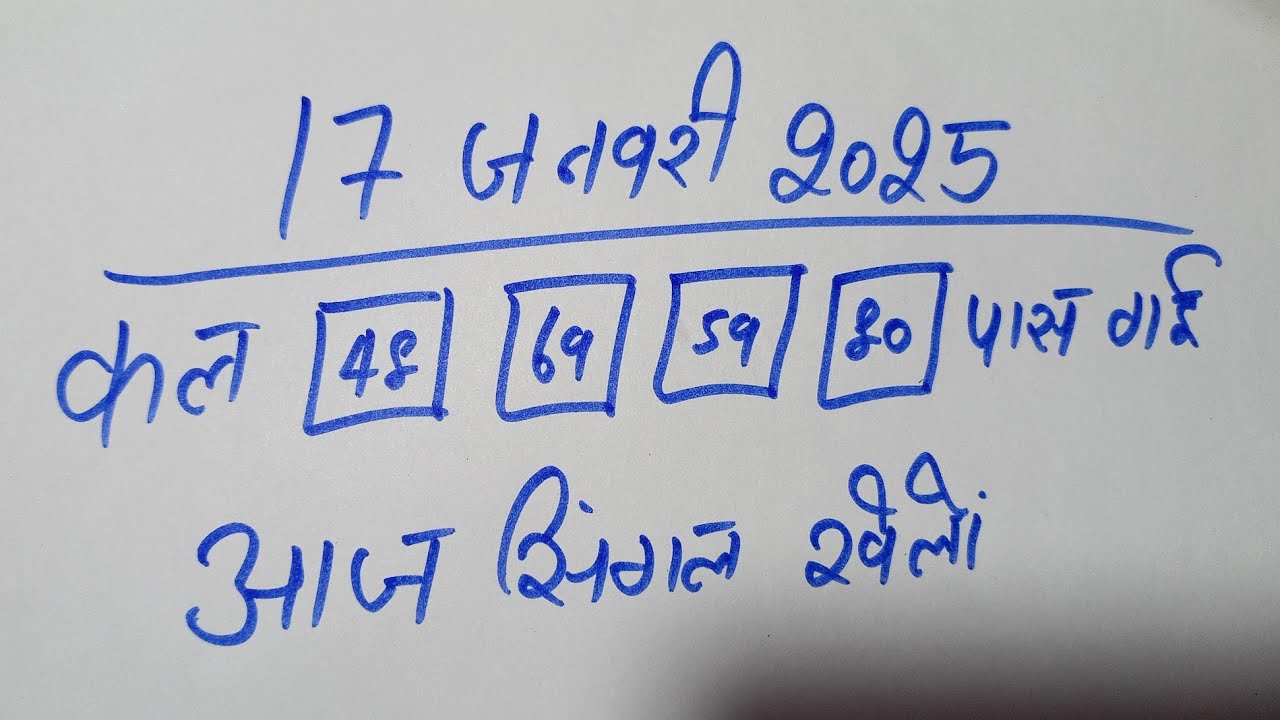 17 जनवरी 2025
कल 48 69 59 80 पास गई
आज सिंगल खेलों